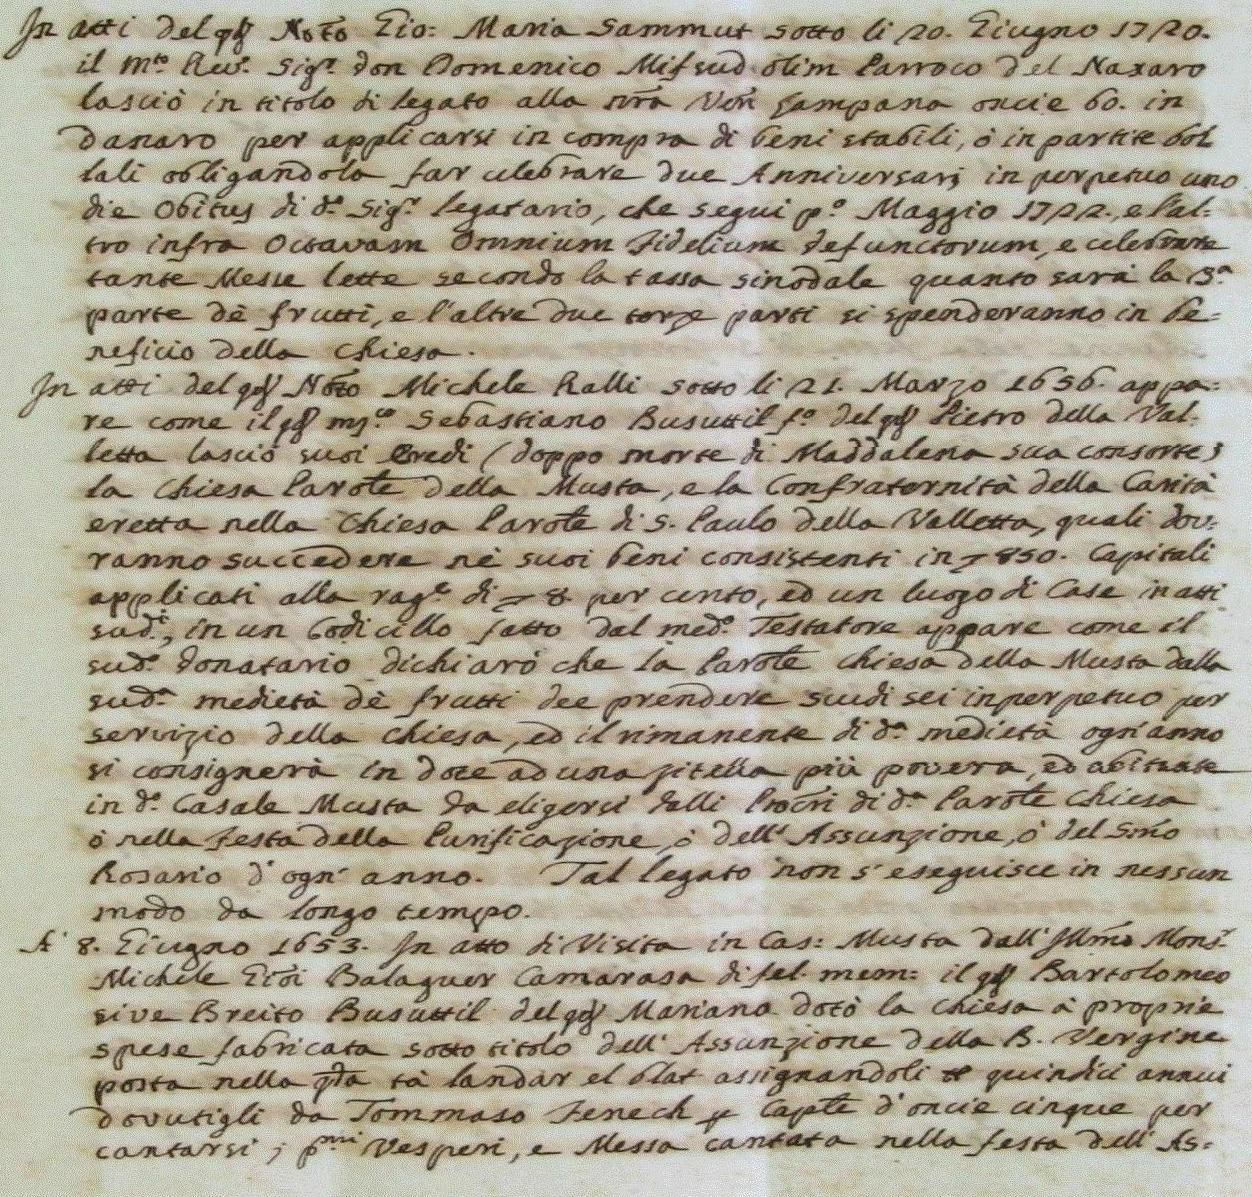 In atti del qdm Notõ Gio: Maria Sammut sotto li 20. Giugno 1720.
il Mto Rev. Sigr. don Domenico Mifsud olim Parroco del Naxaro
lasciò in titolo di legato alla nrã Ven Campana oncie 60. in
danaro per applicarsi in compra di beni stabili, ò in partite bol
lali obligandola far celebrare due Anniversarj in perpetuo uno
die Obitus di do. Sigr. legatario, che segui po. Maggio 1722., e l'al-
tro infra Octavam Omnium Fidelium defunctorum, e celebrare
tante Messe lette secondo la tassa sinodale quanto sarà la 3a.
parte dè frutti, e l'altre due terze parti si spenderanno in be-
neficio della Chiesa.
In atti del qdm Notõ Michele Ralli sotto li 21. Marzo 1656. appa-
re come il qdm Sebastiano Busuttil fo. del qdm Pietro della Val-
letta lasciò suoi Eredi (doppo morte di Maddalena sua consorte)
la Chiesa Parote della Musta, e la Confraternità della Carità
eretta nella Chiesa Parotle di S. Paulo della Valletta, quali dov-
ranno succedere nè suoi beni consistenti in 850. Capitali
applicati alla rage di 8 per cento, ed un luogo di Case in atti
sudi., in un Codicillo fatto dal medo. Testatore appare come il
sudo. donatario dichiarò che la Parotle Chiesa della Musta dalla
suda. medietà dè frutti dee prendere scudi sei in perpetuo per
servizio della Chiesa, ed il rimanente di da. medietà ogni anno
si consignerà in dote ad una zitella più povera, ed abitante
in do. Casale Musta da eligersi dalli Procri di da. Parotle Chiesa
ò nella Festa della Purificazione, ò dell' Assunzione, ò del Smõ
Rosario d' ogn' anno. Tal legato non s' eseguisce in nessun
modo da longo tempo.
A' 8. Giugno 1653. In atto di Visita in Cas: Musta dall' Illmõ Monsr.
Michele Gioi Balaguer Camarasa di fel. mem: il qdm Bartolomeo
sive Breito Busuttil del qdm Mariano dotò la Chiesa à proprie
spese fabricata sotto titolo dell' Assunzione della B. Vergine
posta nella qda tà landar el blat assignandoli quindici annui
dovutigli da Tommaso Fenech Caple d' oncie cinque per
cantarsi j pmi Vesperi, e Messa cantata nella festa dell' As-